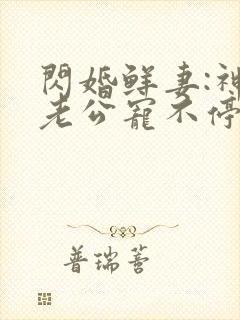 閃婚鲜妻:神
老公寵不停
普瑞